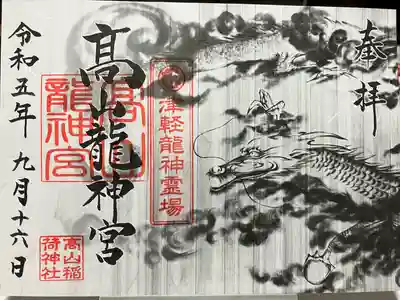 奉拝
津軽龍神霊場
髙山龍神宮
髙山
龍神宮
令和五年 九月十六日
高山稲
荷神社